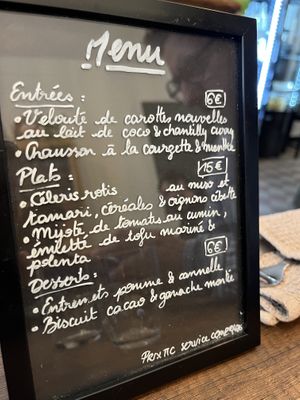 Menu
Entrées : 6€
• Velouté de carottes nouvelles
au lait de coco & chantilly curry
• Chausson à la courgette & menthe
Plats : 15€
• Céleris rotis au miso et
tamari, céréales & oignons cibette
• Mijoté de tomates au cumin,
émilette de tofu mariné &
polenta
Desserts : 6€
• Entremets pomme & cannelle
• Biscuit cacao & ganache montée
Prix TTC service compris